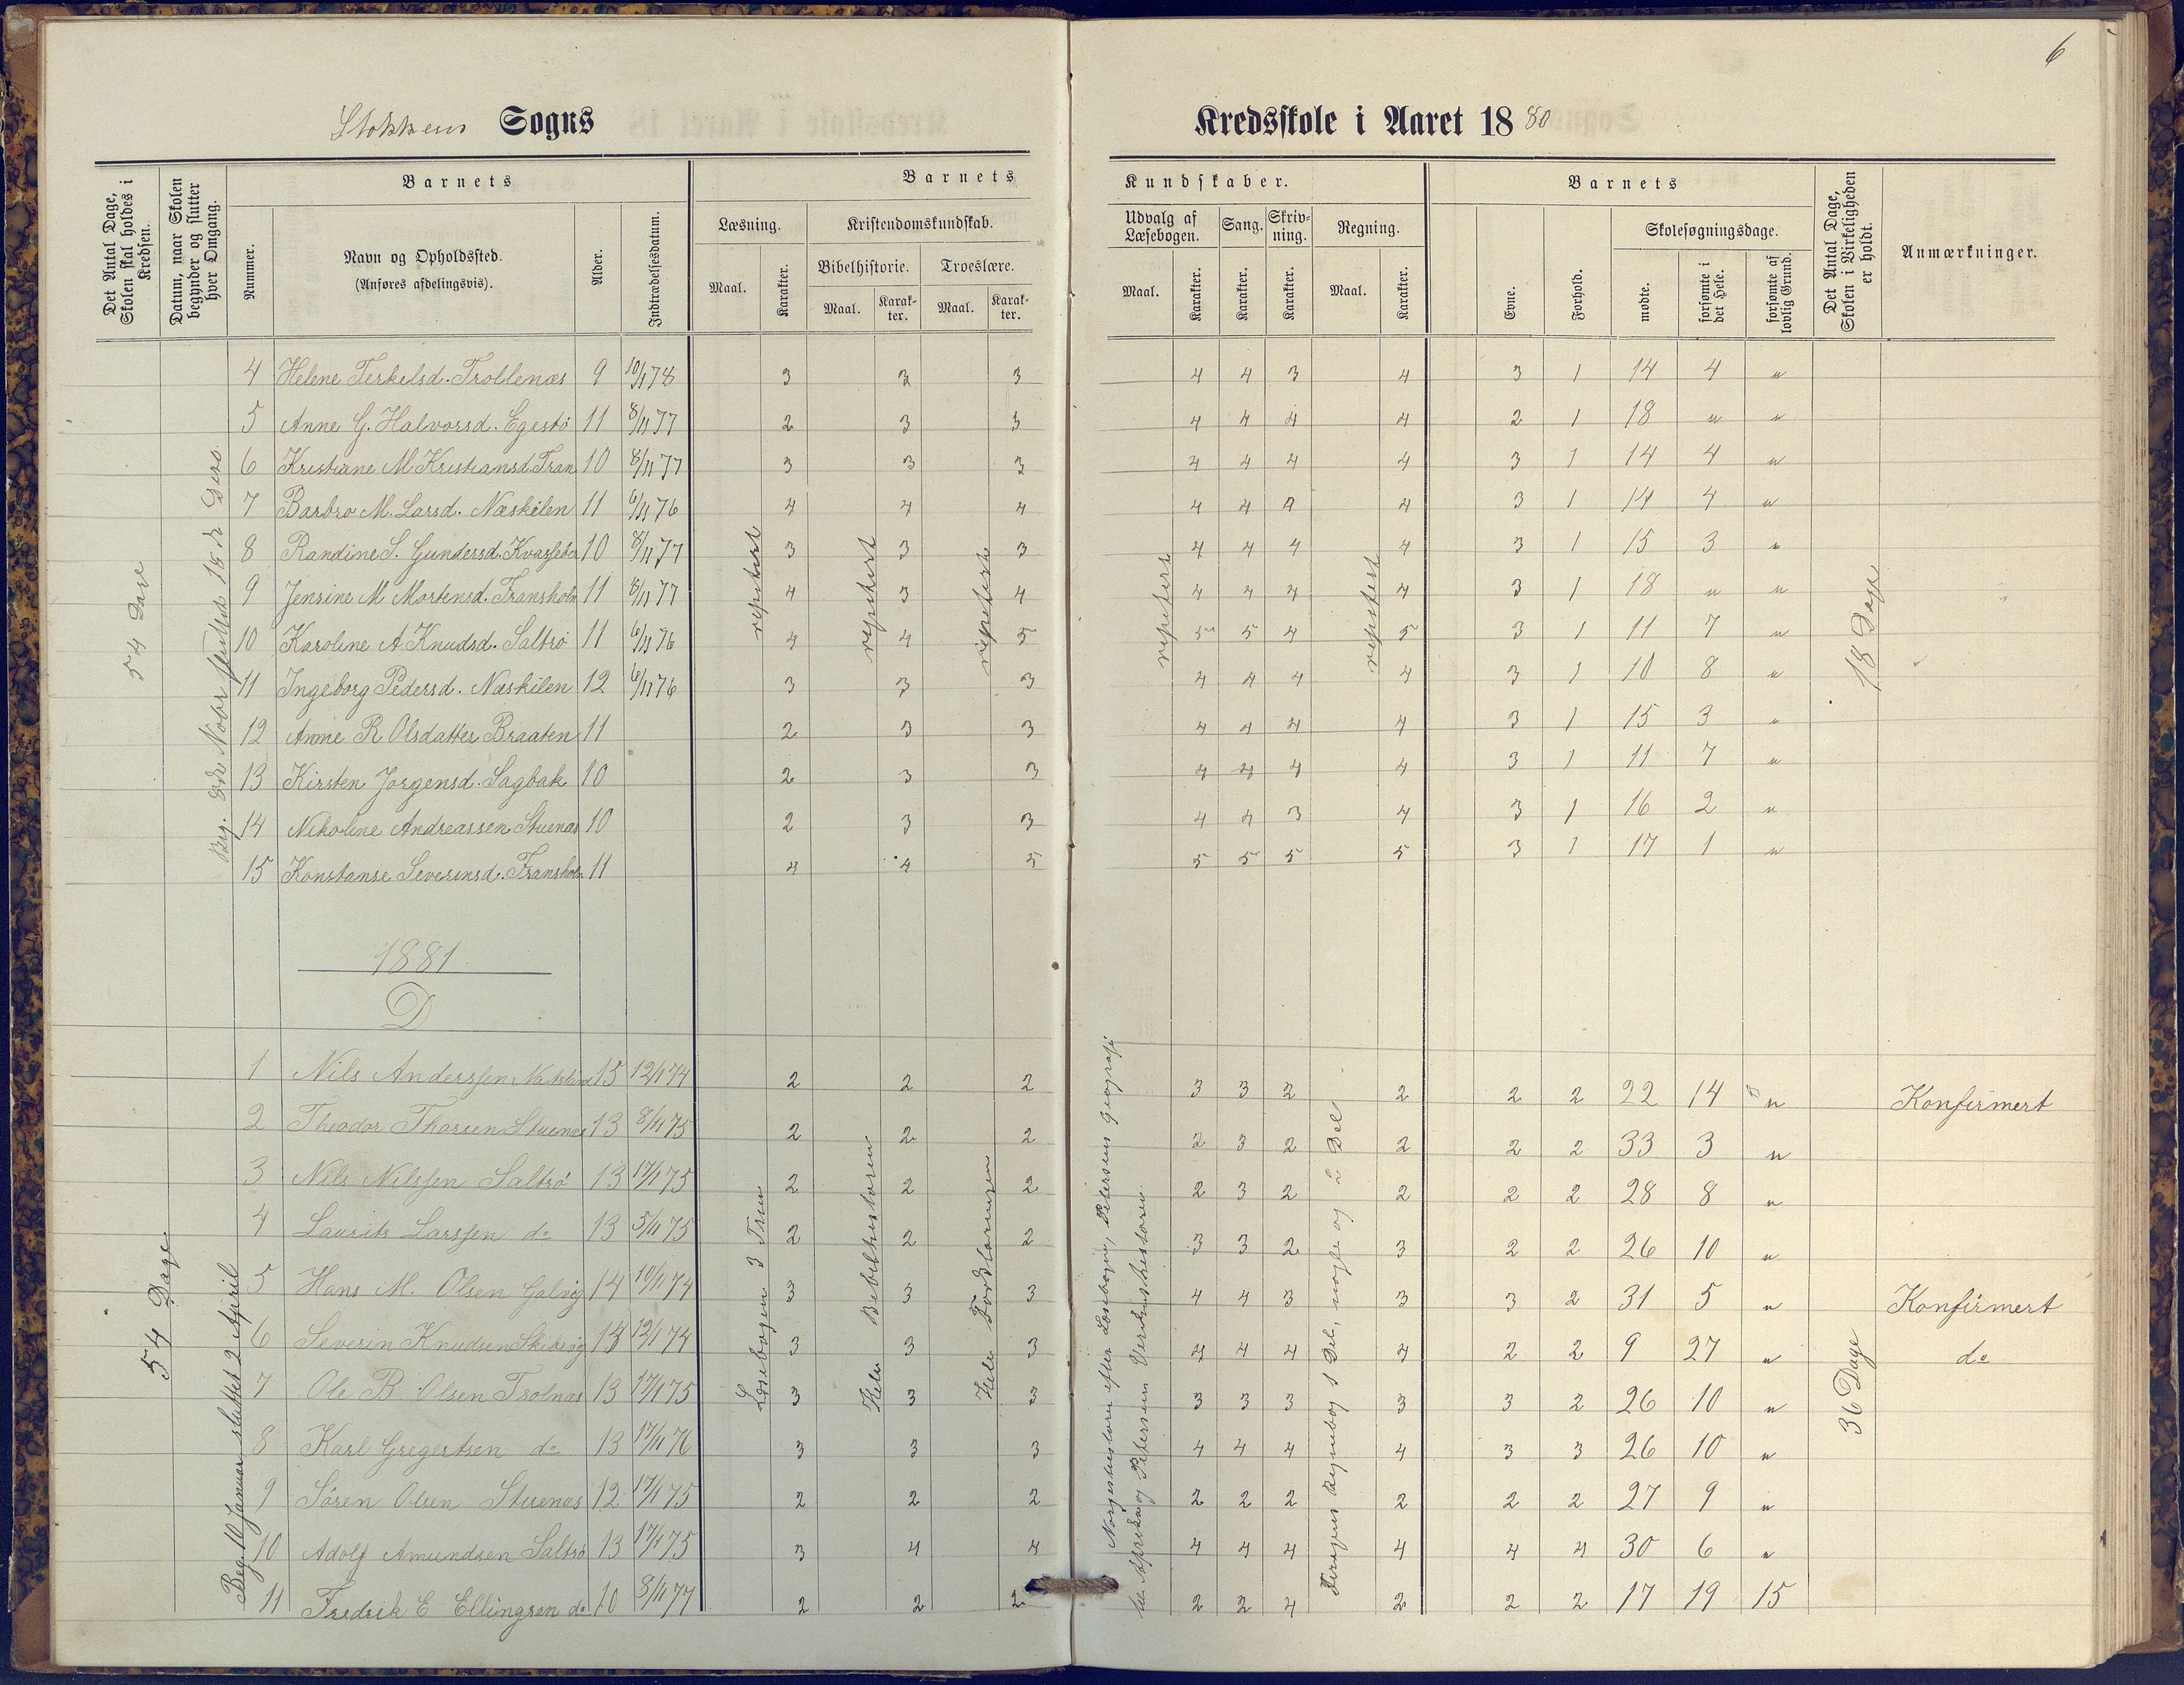 6
Stokkens Sogns Kredsskole i Aaret 1880
Det Antal Dage, Skolen skal holdes i Kredsen.
Datum, naar Skolen begynder og slutter hver Omgang.
Barnets
Nummer.
Navn og Opholdssted.
(Anføres afdelingsvis).
Alder.
Indtrædelsesdatum.
Barnets Kundskaber.
Læsning.
Maal. Karakter.
Kristendomskundskab.
Bibelhistorie. Troeslære.
Maal. Karakter. Maal. Karakter.
Udvalg af Læsebogen. Sang. Skrivning. Regning.
Maal. Karakter. Karakter. Karakter. Maal. Karakter.
Barnets
Evne. Forhold.
Skolesøgningsdage.
mødte. forsømte i det Hele. forsømte af lovlig Grund.
Det Antal Dage, Skolen i Virkeligheden er holdt.
Anmærkninger.
54 Dage
repetert repetert repetert repetert repetert
18 Dage
4 Helene Terkelsd. Trollenæs 9 10/1 78 3 3 3 4 4 3 4 3 1 14 4 "
5 Anne G. Halvorsd. Egestø 11 8/11 77 2 3 3 4 4 4 4 2 1 18 " "
6 Kristiane M. Kristiansd. Fran 10 8/11 77 3 3 3 4 4 4 4 3 1 14 4 "
7 Barbro M. Larsd. Næskilen 11 6/11 76 4 4 4 4 4 4 4 3 1 14 4 "
8 Randine S. Gundersd. Kvasseber 10 8/11 77 3 3 3 4 4 4 4 3 1 15 3 "
9 Jensine M Mortensd. Fransholm 11 8/11 77 4 3 4 4 4 4 4 3 1 18 " "
10 Karoline A Knudsd. Saltrø 11 6/11 76 4 4 5 5 5 4 5 3 1 11 7 "
11 Ingeborg Pedersd. Næskilen 12 6/11 76 3 3 3 4 4 4 4 3 1 10 8 "
12 Anne R Olsdatter Braaten 11 2 3 3 4 4 4 4 3 1 15 3 "
13 Kirsten Jørgensd. Sagbak 10 2 3 3 4 4 4 4 3 1 11 7 "
14 Nikoline Andreassen Stuenæs 10 2 3 3 4 4 3 4 3 1 16 2 "
15 Konstanse Severinsd. Fransholm 11 4 4 5 5 5 5 5 3 1 17 1 "
1881
D
54 Dage
Beg. 10 Januar sluttet 2 April
Læsebogen 3 Trin
Hele Bibelhistorien
Hele Forklaringen
Norgeshistorie efter Læsebogen, Petersens Geografi
og Petersens Verdenshistorie.
Regnebog 1 Del, nogle og 2 Del
36 Dage
1 Nils Anderssen 15 12/1 74 2 2 2 3 3 2 2 2 2 22 14 " Konfirmert
2 Theodor Thorsen Stuenæs 13 8/11 75 2 2 2 2 3 2 2 2 2 33 3 "
3 Nils Nilssen Saltrø 13 17/1 75 2 2 2 2 3 2 2 2 2 28 8 "
4 Laurits Larssen do 13 5/11 75 2 2 2 3 3 2 3 2 2 26 10 "
5 Hans M. Olsen Galvig 14 10/1 74 3 3 3 4 4 3 3 3 2 31 5 " Konfirmert
6 Severin Knudsen Skibevig 14 12/1 74 3 3 3 4 4 4 4 2 2 9 27 " do
7 Ole B. Olsen Trolnæs 13 17/1 75 3 3 3 3 3 3 3 3 2 26 10 "
8 Karl Gregertsen do 13 17/11 76 3 3 3 4 4 4 4 3 3 26 10 "
9 Søren Olsen Stuenæs 12 17/1 75 2 2 2 2 2 2 2 2 2 27 9 "
10 Adolf Amundsen Saltrø 13 17/1 75 3 4 4 4 4 4 4 4 4 30 6 "
11 Fredrik E Ellingsen do 10 8/11 77 2 2 2 2 2 4 2 2 2 17 19 15